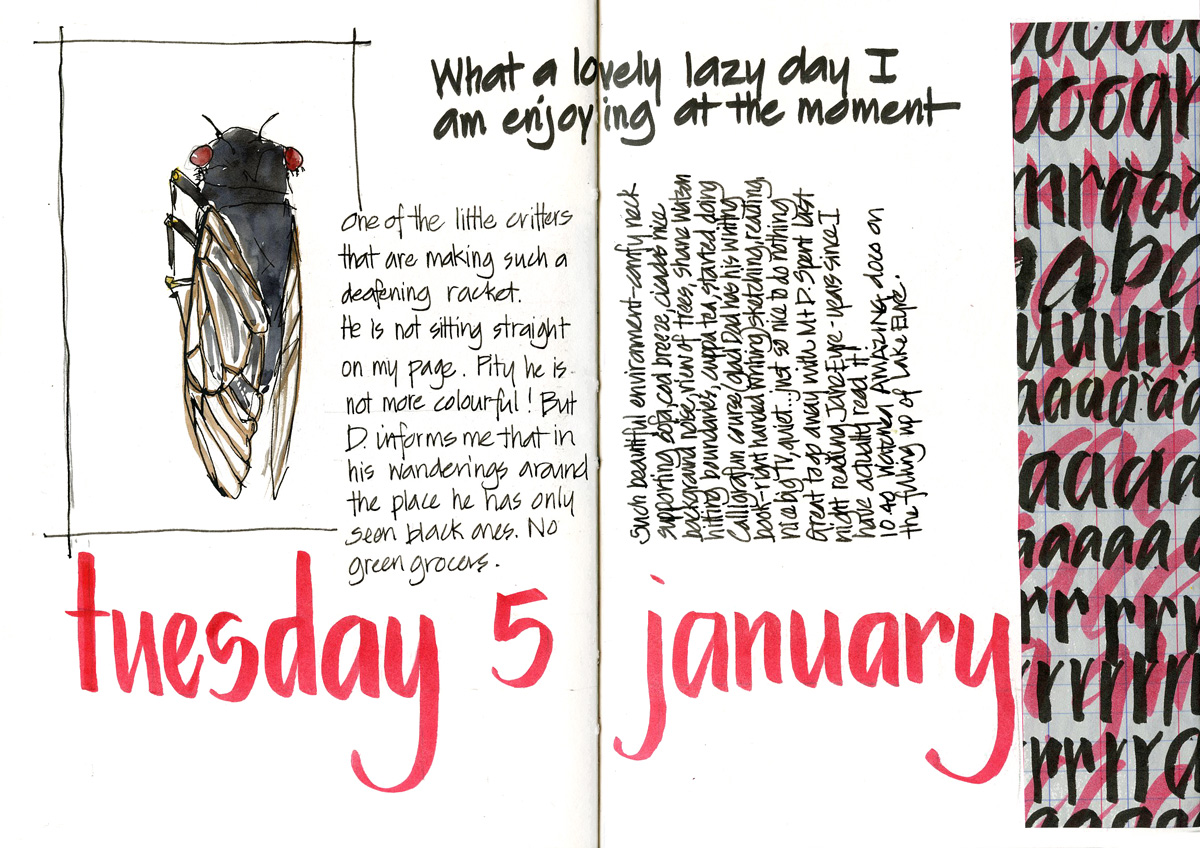 What a lovely lazy day I
am enjoying at the moment
One of the little critters
that are making such a
deafening racket.
He is not sitting straight
on my page. Pity he is
not more colourful! But
D. informs me that in
his wanderings around
the place he has only
seen black ones. No
green grocers.
Such beautiful environment-comfy neck
supporting sofa, cool breeze, cicadas nice
background noise, view of trees, Shane Watson
hitting boundaries, cuppa tea, started doing
Calligrafun course (glad Dad has his writing
book-right handed writing, sketching, reading,
nice big TV, quiet...just so nice to do nothing
Great to go away with M+D. Spent last
night reading Jane Eyre-years since I
have actually read it!
National AMAZING doco on
the filling up of Lake Eyre.
tuesday 5 january